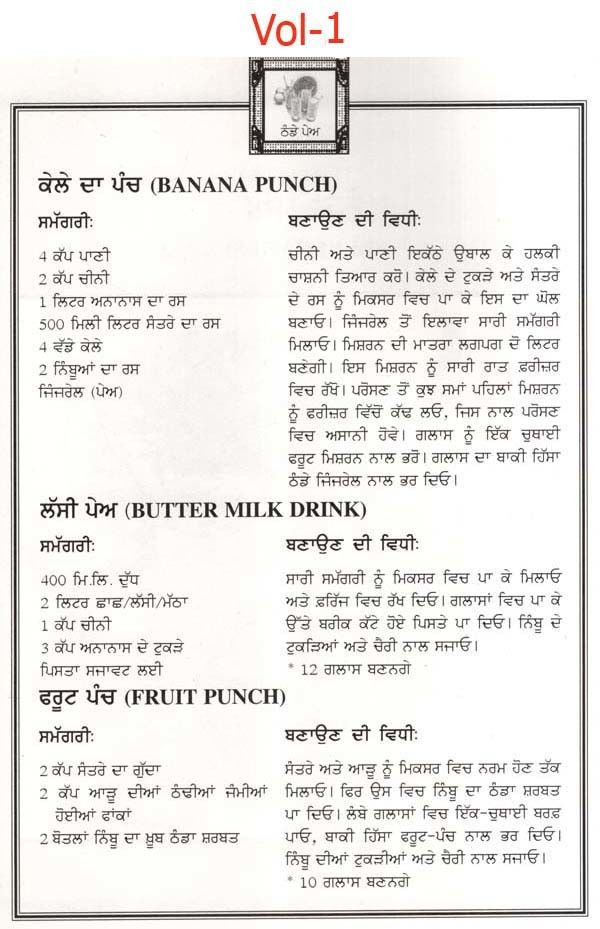 Vol-1
ਠੰਡੇ ਪੇਅ
ਕੇਲੇ ਦਾ ਪੰਚ (BANANA PUNCH)
ਸਮੱਗਰੀ:
4 ਕੱਪ ਪਾਣੀ
2 ਕੱਪ ਚੀਨੀ
1 ਲਿਟਰ ਅਨਾਨਾਸ ਦਾ ਰਸ
500 ਮਿਲੀ ਲਿਟਰ ਸੰਤਰੇ ਦਾ ਰਸ
4 ਵੱਡੇ ਕੇਲੇ
2 ਨਿੰਬੂਆਂ ਦਾ ਰਸ
ਜਿੰਜਰੇਲ (ਪੇਅ)
ਬਣਾਉਣ ਦੀ ਵਿਧੀ:
ਚੀਨੀ ਅਤੇ ਪਾਣੀ ਇਕੱਠੇ ਉਬਾਲ ਕੇ ਹਲਕੀ
ਚਾਸ਼ਨੀ ਤਿਆਰ ਕਰੋ। ਕੇਲੇ ਦੇ ਟੁਕੜੇ ਅਤੇ ਸੰਤਰੇ
ਦੇ ਰਸ ਨੂੰ ਮਿਕਸਰ ਵਿਚ ਪਾ ਕੇ ਇਸ ਦਾ ਘੋਲ
ਬਣਾਓ। ਜਿੰਜਰੇਲ ਤੋਂ ਇਲਾਵਾ ਸਾਰੀ ਸਮੱਗਰੀ
ਮਿਲਾਓ। ਮਿਸ਼ਰਨ ਦੀ ਮਾਤਰਾ ਲਗਪਗ ਦੋ ਲਿਟਰ
ਬਣੇਗੀ। ਇਸ ਮਿਸ਼ਰਨ ਨੂੰ ਸਾਰੀ ਰਾਤ ਫ਼ਰੀਜ਼ਰ
ਵਿਚ ਰੱਖੋ। ਪਰੋਸਣ ਤੋਂ ਕੁਝ ਸਮਾਂ ਪਹਿਲਾਂ ਮਿਸ਼ਰਨ
ਨੂੰ ਫਰੀਜ਼ਰ ਵਿੱਚੋਂ ਕੱਢ ਲਓ, ਜਿਸ ਨਾਲ ਪਰੋਸਣ
ਵਿਚ ਅਸਾਨੀ ਹੋਵੇ। ਗਲਾਸ ਨੂੰ ਇੱਕ ਚੁਥਾਈ
ਫਰੂਟ ਮਿਸ਼ਰਨ ਨਾਲ ਭਰੋ। ਗਲਾਸ ਦਾ ਬਾਕੀ ਹਿੱਸਾ
ਠੰਡੇ ਜਿੰਜਰੇਲ ਨਾਲ ਭਰ ਦਿਓ।
ਲੱਸੀ ਪੇਅ (BUTTER MILK DRINK)
ਸਮੱਗਰੀ:
400 ਮਿ.ਲਿ. ਦੁੱਧ
2 ਲਿਟਰ ਛਾਛ/ਲੱਸੀ/ਮੱਠਾ
1 ਕੱਪ ਚੀਨੀ
3 ਕੱਪ ਅਨਾਨਾਸ ਦੇ ਟੁਕੜੇ
ਪਿਸਤਾ ਸਜਾਵਟ ਲਈ
ਬਣਾਉਣ ਦੀ ਵਿਧੀ:
ਸਾਰੀ ਸਮੱਗਰੀ ਨੂੰ ਮਿਕਸਰ ਵਿਚ ਪਾ ਕੇ ਮਿਲਾਓ
ਅਤੇ ਫ਼ਰਿੱਜ ਵਿਚ ਰੱਖ ਦਿਓ। ਗਲਾਸਾਂ ਵਿਚ ਪਾ ਕੇ
ਉੱਤੇ ਬਰੀਕ ਕੱਟੇ ਹੋਏ ਪਿਸਤੇ ਪਾ ਦਿਓ। ਨਿੰਬੂ ਦੇ
ਟੁਕੜਿਆਂ ਅਤੇ ਚੈਰੀ ਨਾਲ ਸਜਾਓ।
* 12 ਗਲਾਸ ਬਣਨਗੇ
ਫਰੂਟ ਪੰਚ (FRUIT PUNCH)
ਸਮੱਗਰੀ:
2 ਕੱਪ ਸੰਤਰੇ ਦਾ ਗੁੱਦਾ
2 ਕੱਪ ਆੜੂ ਦੀਆਂ ਠੰਢੀਆਂ ਜੰਮੀਆਂ
ਹੋਈਆਂ ਫਾਂਕਾਂ
2 ਬੋਤਲਾਂ ਨਿੰਬੂ ਦਾ ਖ਼ੂਬ ਠੰਡਾ ਸ਼ਰਬਤ
ਬਣਾਉਣ ਦੀ ਵਿਧੀ:
ਸੰਤਰੇ ਅਤੇ ਆੜੂ ਨੂੰ ਮਿਕਸਰ ਵਿਚ ਨਰਮ ਹੋਣ ਤੱਕ
ਮਿਲਾਓ। ਫਿਰ ਉਸ ਵਿਚ ਨਿੰਬੂ ਦਾ ਠੰਡਾ ਸ਼ਰਬਤ
ਪਾ ਦਿਓ। ਲੰਬੇ ਗਲਾਸਾਂ ਵਿਚ ਇੱਕ-ਚੁਥਾਈ ਬਰਫ਼
ਪਾਓ, ਬਾਕੀ ਹਿੱਸਾ ਫਰੂਟ-ਪੰਚ ਨਾਲ ਭਰ ਦਿਓ।
ਨਿੰਬੂ ਦੀਆਂ ਟੁਕੜੀਆਂ ਅਤੇ ਚੈਰੀ ਨਾਲ ਸਜਾਓ।
* 10 ਗਲਾਸ ਬਣਨਗੇ